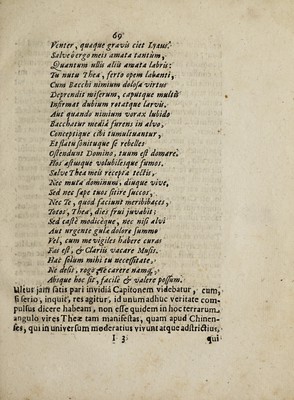 69
Venter, quaque gravis ciet Lyæus.
Salve ô ergo meis amata tantùm,
Quantum ullis aliis amata labris:
Tu nutu Thea, ferto opem labanti,
Cum Bacchi nimium dolosa virtus
Deprendit miserum, caputque multis
Infirmat dubium rotatque larvis.
Aut quando nimium vorax libido
Bacchatur mediâ furens in alvo,
Conceptique cibi tumultuantur,
Et flatu sonituque se rebelles
Ostendunt Domino, tuum est domare
Hos æstusque volubilesque fumos.
Salve Thea meis recepta tectis,
Nec muta dominum, diuque vive,
Sed nec sæpe tuos sitire succos,
Nec Te, quod faciunt meribibaces,
Totos, Thea, dies frui juvabit:
Sed castè modicéque, nec nisi alvi
Aut urgente gulæ dolore summo
Vel, cum me vigiles habere curas
Fas est, & Clariis vacare Musis.
Hac solum mihi tu necessitate,
Ne desis, rogo te carere namq;
Absque hoc sit, facile & valere possum.
Ultus jam satis pari invidiâ Capitonem videbatur, cum,
si serio, inquit, res agitur, id unum adhuc veritate com-
pulsus dicere habeam, non esse quidem in hoc terrarum
angulo vires Theæ tam manifestas, quam apud Chinen-
ses, qui in universum moderatius vivunt atque adstrictius,
I 3 qui